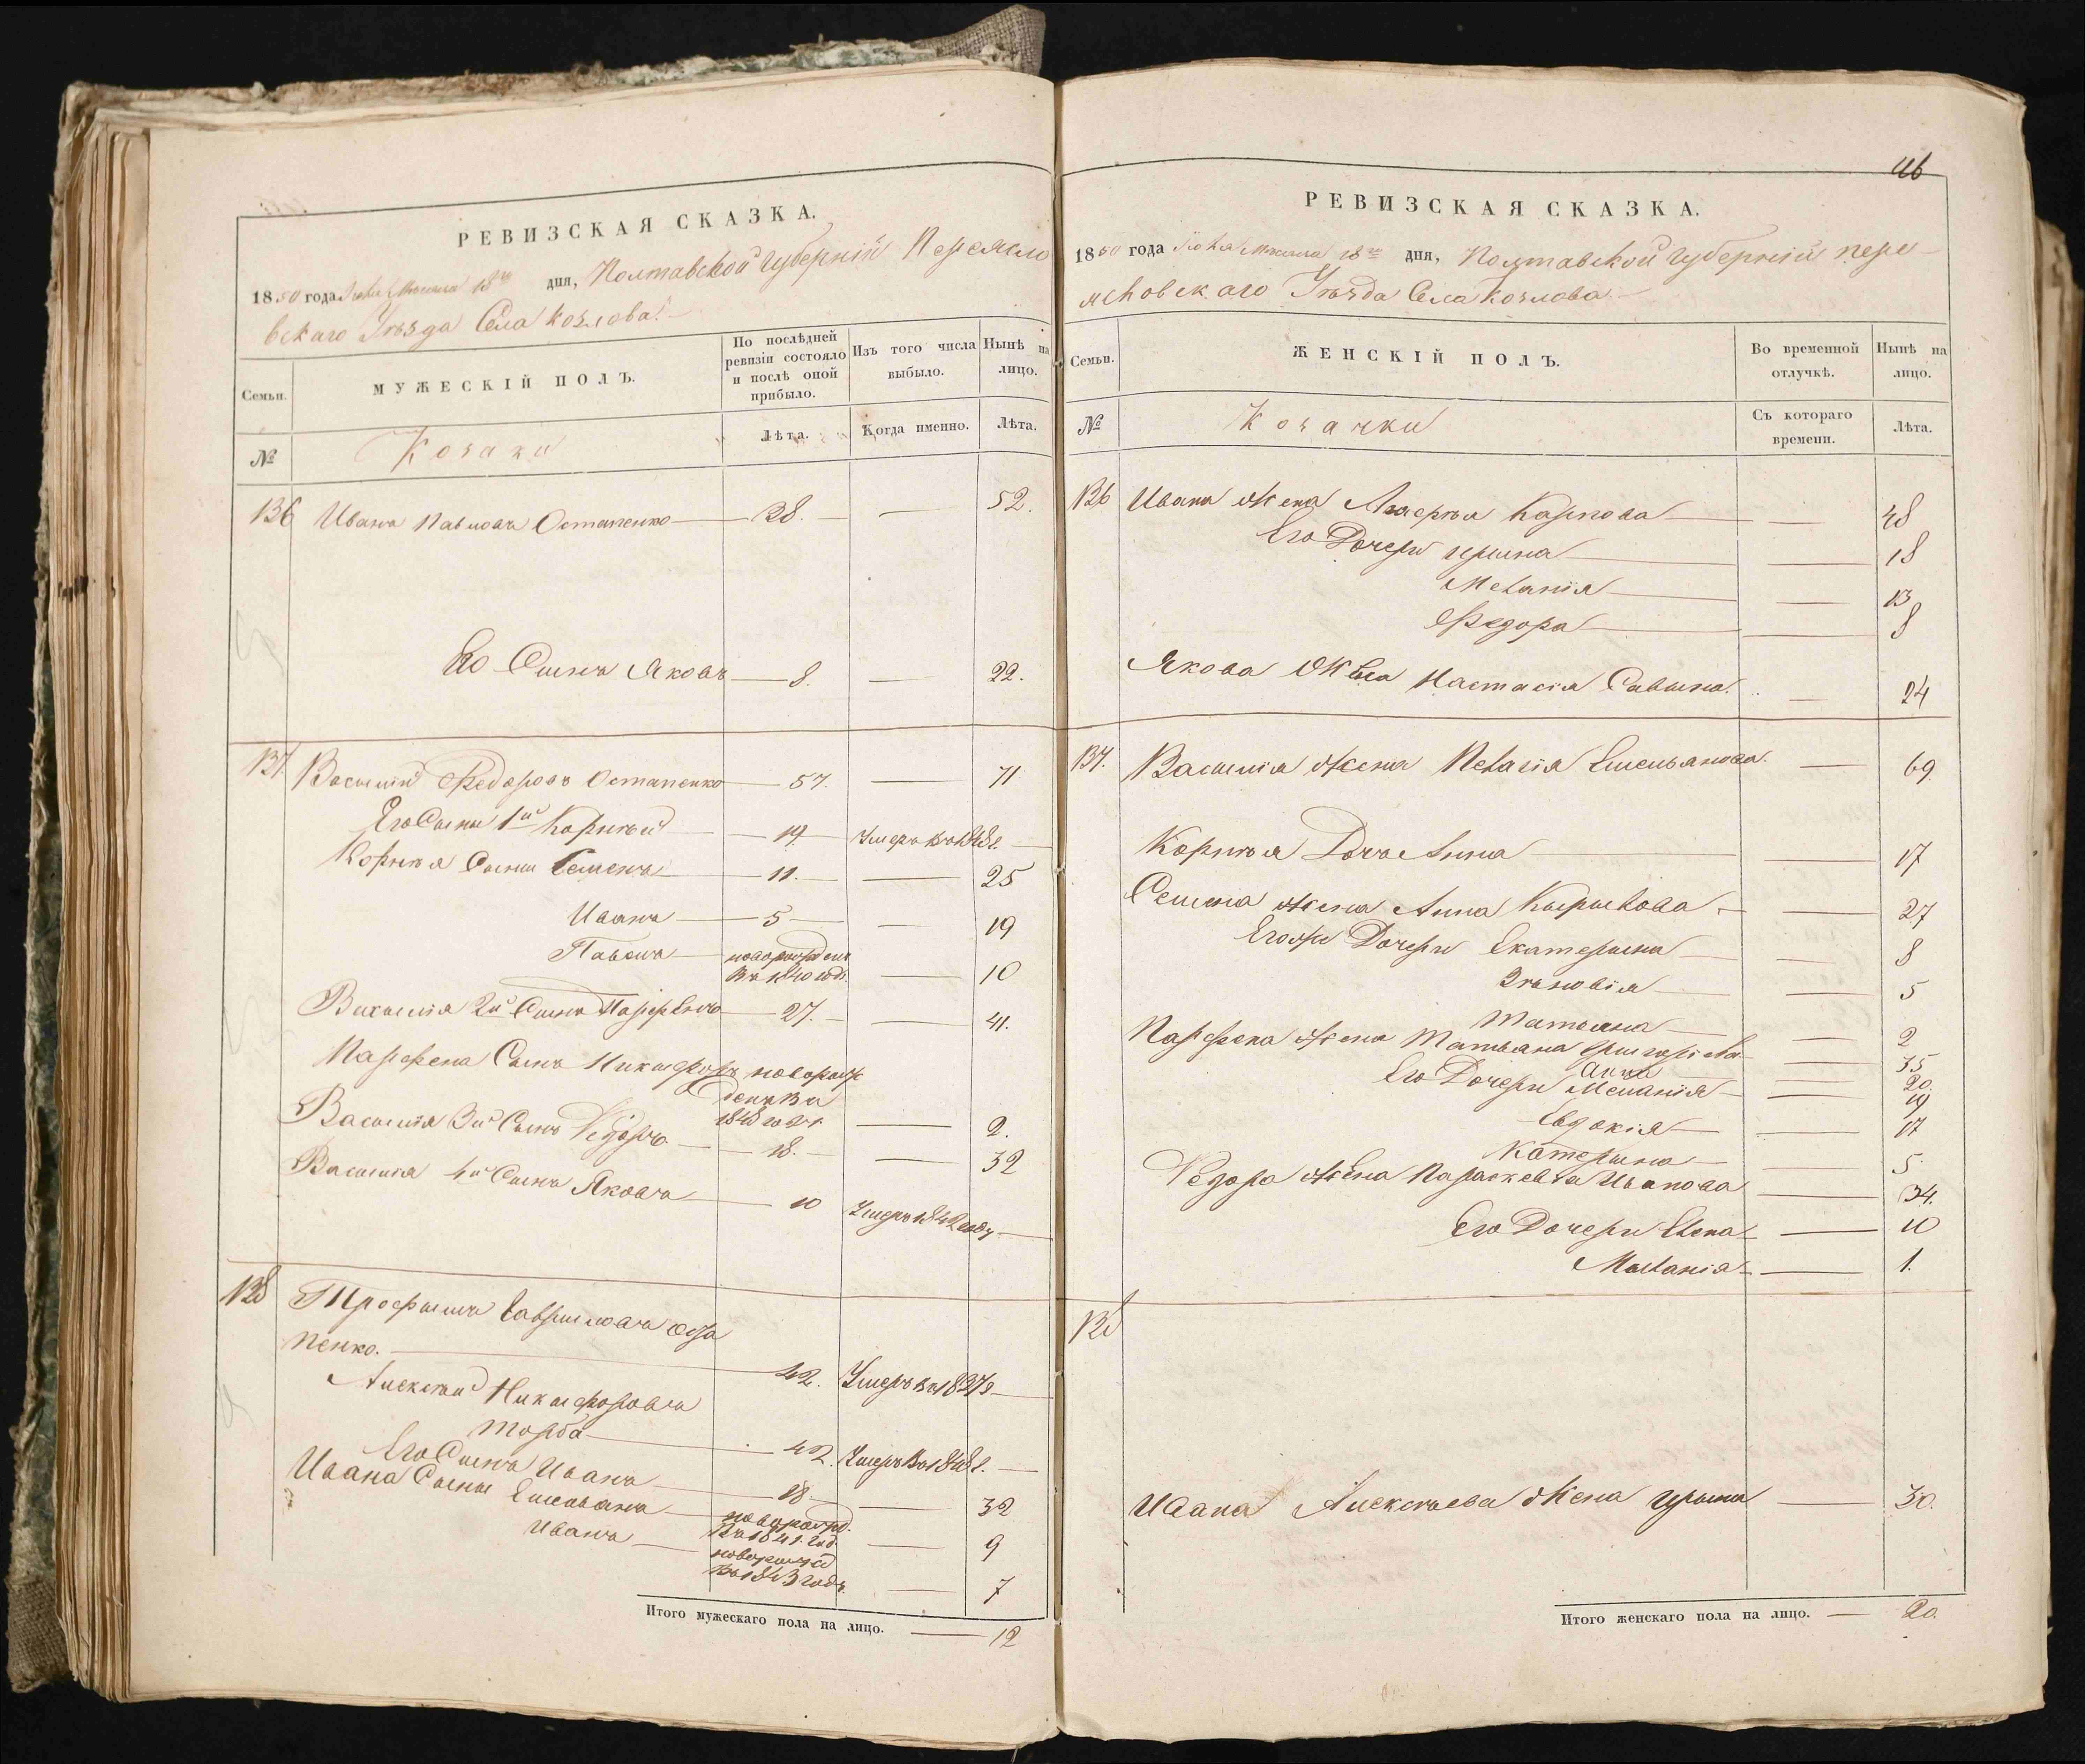 РЕВИЗСКАЯ СКАЗКА.
1850 года Июня Месяца 18го дня, Полтавской Губерній Переясло
вскаго Уѣзда Села Козлова.
Семьи.
МУЖЕСКІЙ ПОЛЪ.
По послѣдней ревизіи состояло и послѣ оной прибыло.
Изъ того числа выбыло.
Нынѣ на лицо.
№
Козаки
Лѣта.
Когда именно.
Лѣта.
136 Иванъ Павловъ Остапенко — 38. — 52.
Его Сынъ Яковъ — 8. — 22.
137. Василий Федоровъ Остапенко — 57. — 71
Его Сыны 1й Корнѣй — 19. — Умеръ въ 1848 г. —
Корнѣя Сыны Семенъ — 11. — 25
Иванъ — 5 — 19
Павелъ — новорожденъ
Въ 1840 годѣ. — 10
Василія 2й Сынъ Парфенъ — 27. — 41.
Парфена Сынъ Никифоръ новорож
денъ въ
1848 годѣ. — 2.
Василія 3й Сынъ Федоръ — 18. — 32
Василія 4й Сынъ Яковъ — 10 Умеръ 1842 году —
138 Трофимъ Гавриловъ Оста
пенко. — 42. Умеръ въ 1837 г —
Алексѣй Никифоровъ
Торба — 42. Умеръ въ 1848 г. —
Его Сынъ Иванъ — 18. — 32
Ивана Сыны Емельянъ — новорожд.
Въ 1841 год. — 9
Иванъ — новорожд
Въ 1843 годѣ. — 7
Итого мужескаго пола на лицо. — 12
46
РЕВИЗСКАЯ СКАЗКА.
1850 года Июня Месяца 18го дня, Полтавской Губерній Пере
ясловскаго Уѣзда Села Козлова —
Семьи.
ЖЕНСКІЙ ПОЛЪ.
Во временной отлучкѣ.
Нынѣ на лицо.
№
Козачки
Съ котораго времени.
Лѣта.
136 Ивана Жена Карпова — 48
Его Дочери Ирина — 18
Меланія — 13
Федора — 8
Якова Жена Настасія Савина. — 24
137. Василія Жена Пелагія Емельянова. — 69.
Корнѣя Дочь Анна — 17
Семена Жена Анна Кирилова — 27
Его же Дочери Екатерина — 8
Зѣновія — 5
Татьяна — 2
Парфена Жена Татьяна Григорьева — 35
Анна — 20
Его Дочери Меланія — 19
Евдокія — 17
Катерина — 5.
Федора Жена Параскевія Иванова — 34.
Его Дочери Елена — 10
Меланія — 1.
138
Ивана Алексѣева Жена Ирина — 30.
Итого женскаго пола на лицо. — 20.